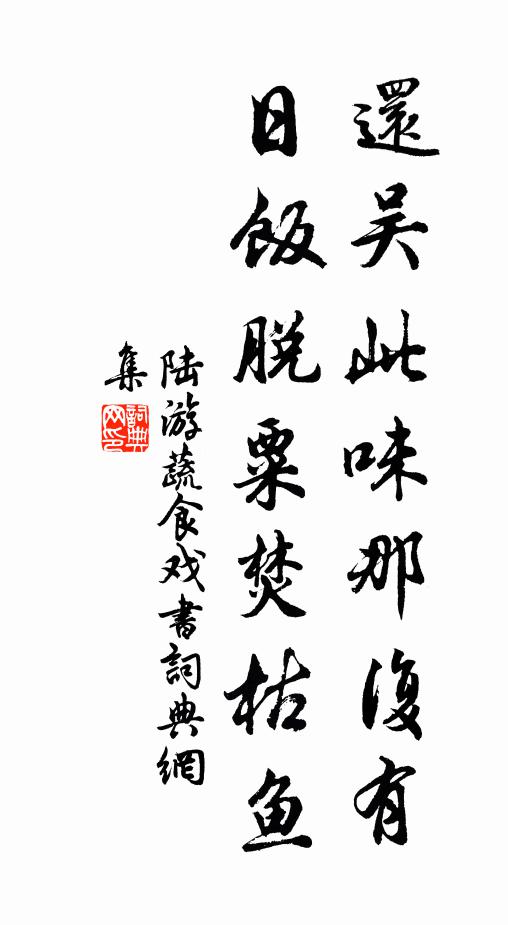 還吴此味那復有
日飯脱粟焚枯魚
陆游蔬食戏書詞典網
集
詞典网印